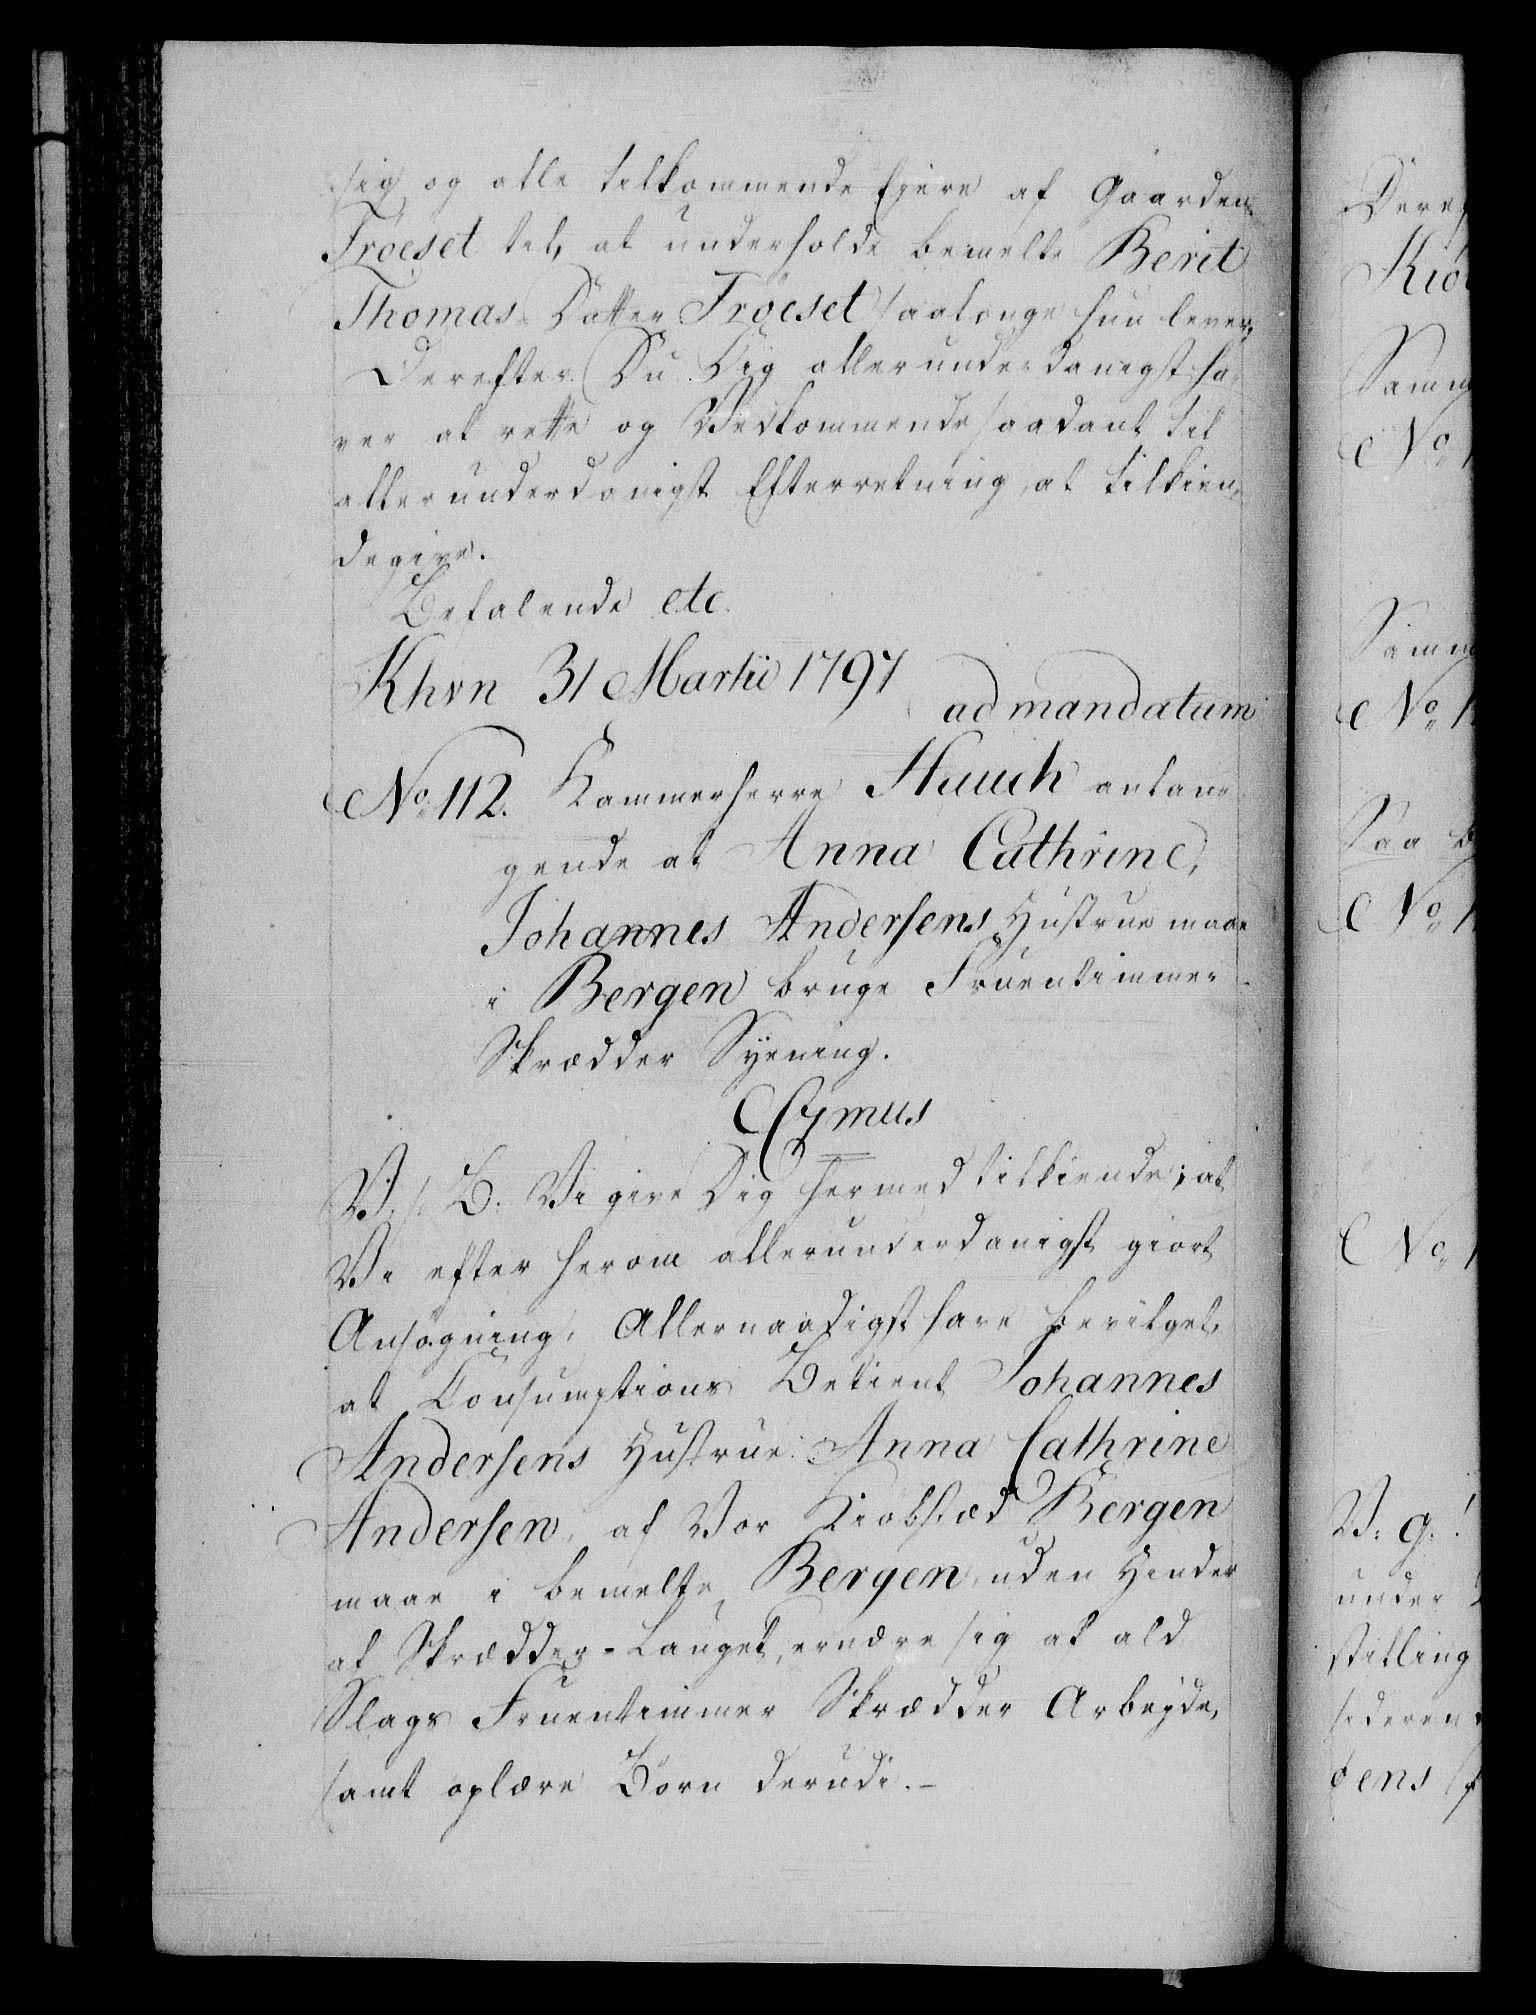 sig og alle tilkommende Ejere af Gaarden
Tröeset til, at underholde bemelte Berit
Thomas Datter Tröeset saalænge hun lever,
Derefter Du Dig allerunderdanigst ha-
ver at rette og Vedkommende saadant til
allerunderdanigst Efterretning, at tilkien-
degive.
Befalende etc.
Khvn 31 Martii 1797
ad mandatum
No. 112. Kammerherre Hauch anlan-
gende at Anna Cathrine,
Johannes Andersens Hustrue maae
i Bergen bruge Fruentimmer
Skrædder Syening.
C7mus
V: s: B: Vi give Dig hermed tilkiende; at
Vi efter herom allerunderdanigst giort
Ansøgning, Allernaadigst have bevilget,
at Consumptions Betient Johannes
Andersens Hustrue Anna Cathrine
Andersen, af Vor Kiøbstæd Bergen
maae i bemelte Bergen, uden Hinder
af Skrædder-Lauget, ernære sig af ald
Slags Fruentimmer Skrædder Arbejde,
samt oplære Børn derudi.-
No
No
No
No
V: g:
under
stilling